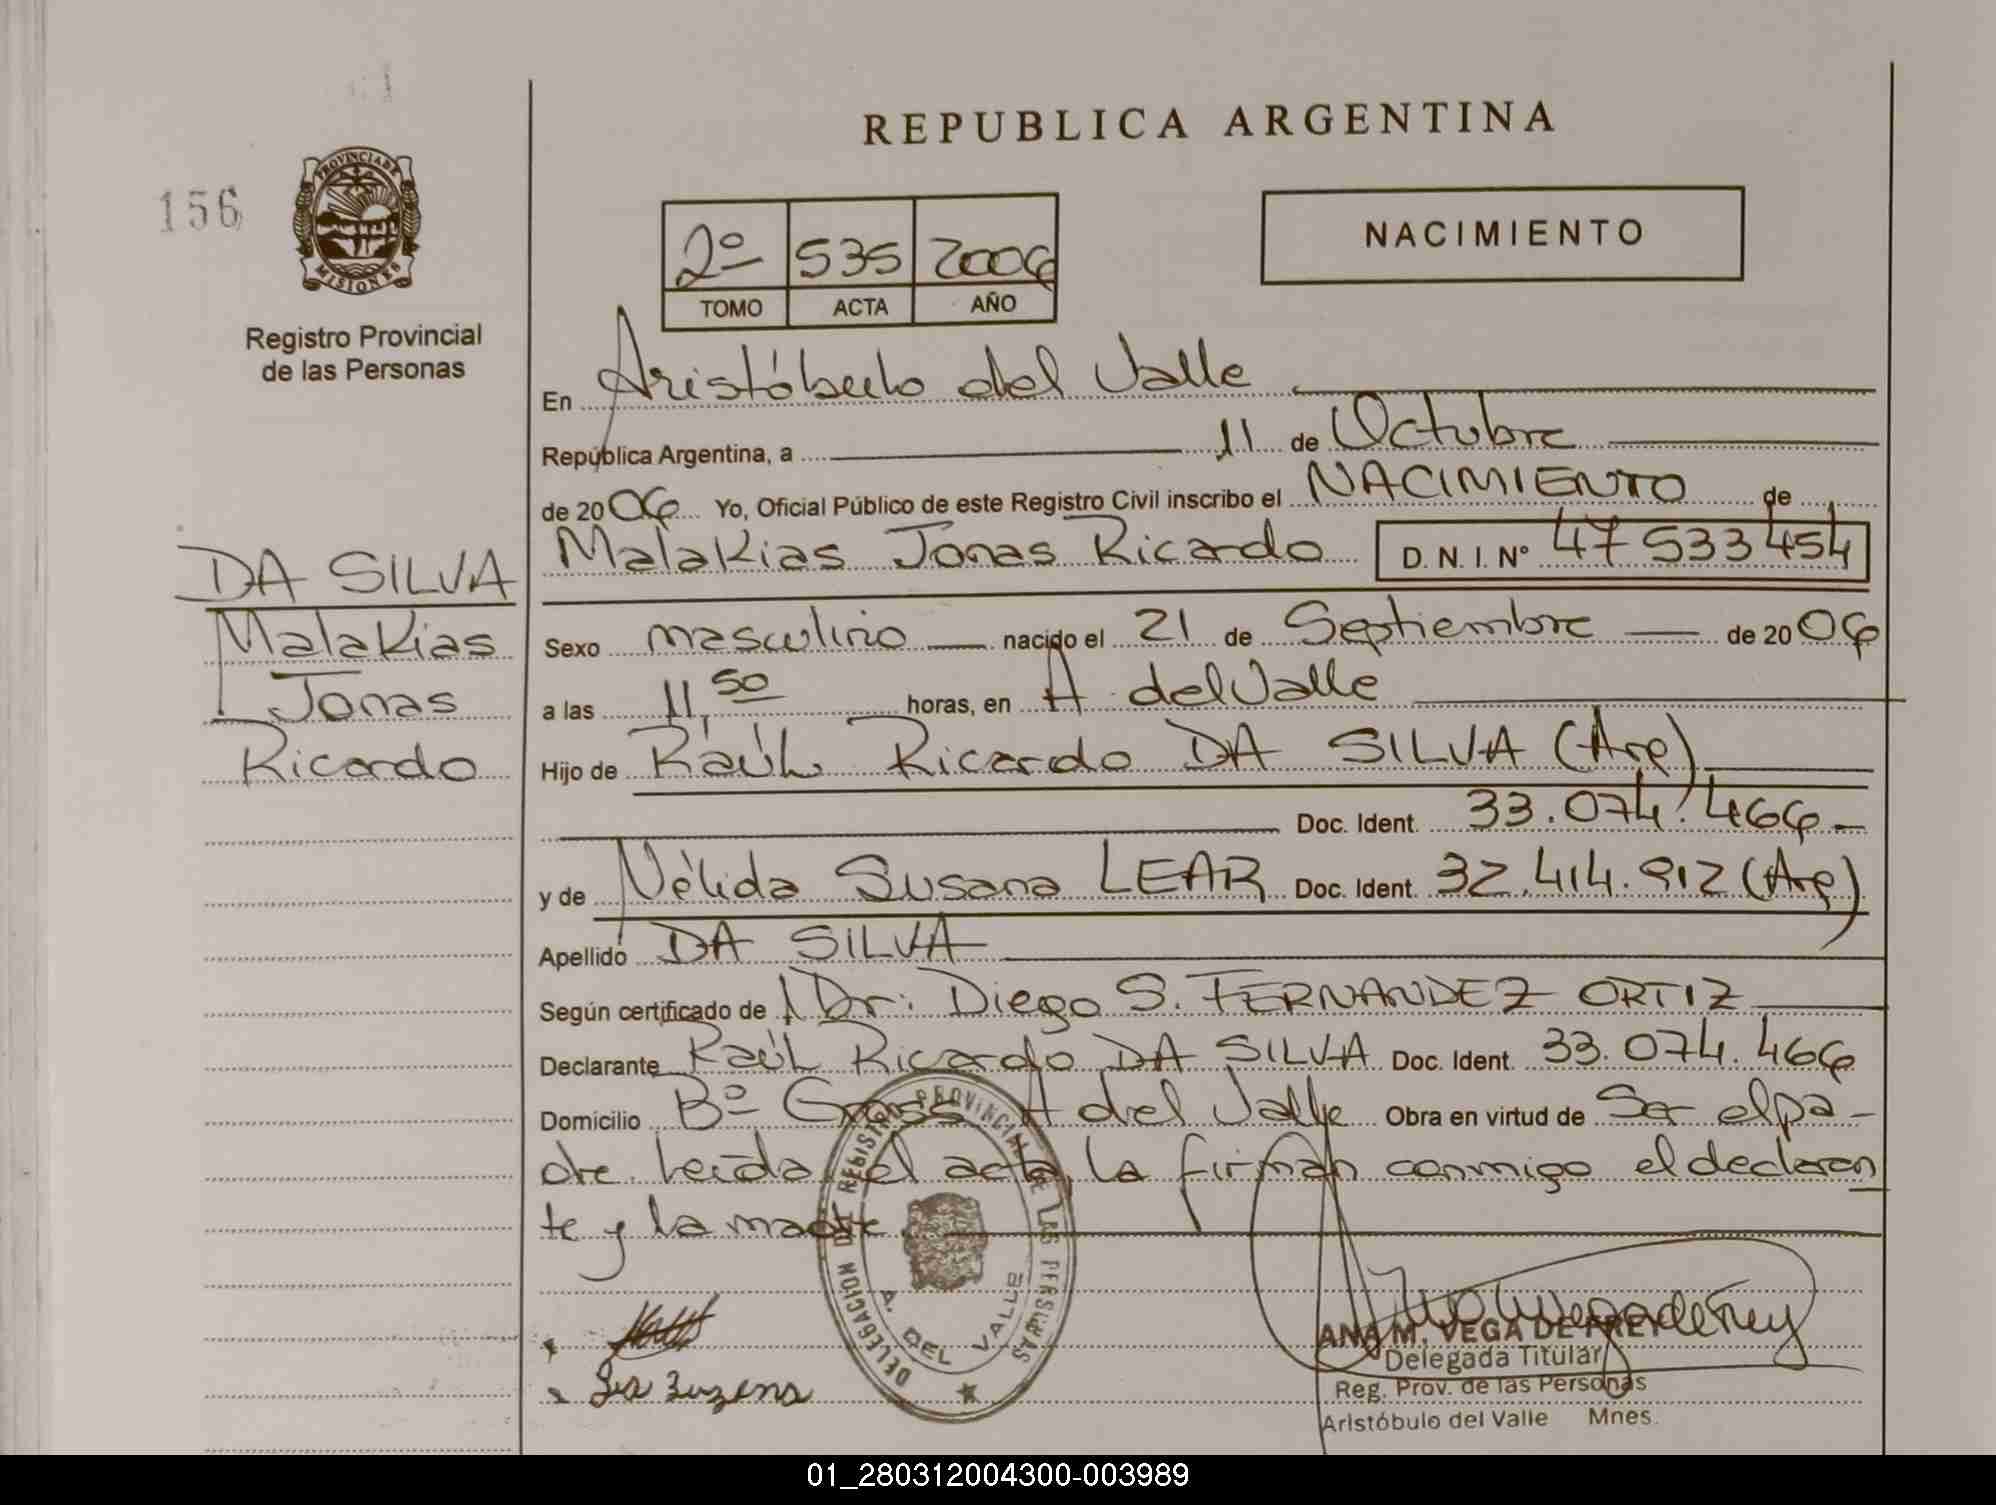 REPUBLICA ARGENTINA
156
PROVINCIA DE
MISIONES
Registro Provincial
de las Personas
2º 535 2006
TOMO ACTA AÑO
NACIMIENTO
En Aristóbulo del Valle
República Argentina, a 11 de Octubre
de 2006 Yo, Oficial Público de este Registro Civil inscribo el NACIMIENTO de
Malakias Jonas Ricardo D. N. I. Nº 47 533 454
DA SILVA
Malakias
Jonas
Ricardo
Sexo masculino nacido el 21 de Septiembre de 2006
a las 11,50 horas, en A del Valle
Hijo de Raúl Ricardo DA SILVA (Arg)
Doc. Ident. 33.074.466
y de Nélida Susana LEAR Doc. Ident. 32.414.912 (Arg)
Apellido DA SILVA
Según certificado de Dr: Diego S. FERNANDEZ ORTIZ
Declarante Raúl Ricardo DA SILVA Doc. Ident. 33.074.466
Domicilio Bº Gross A del Valle Obra en virtud de Ser el pa-
dre. Leída el acta, la firman conmigo el declaran
te y la madre.
DELEGACION DEL REGISTRO PROVINCIAL DE LAS PERSONAS
A. DEL VALLE
ANA M. VEGA DE FREY
Delegada Titular
Reg. Prov. de las Personas
Aristóbulo del Valle Mnes.
01_280312004300-003989